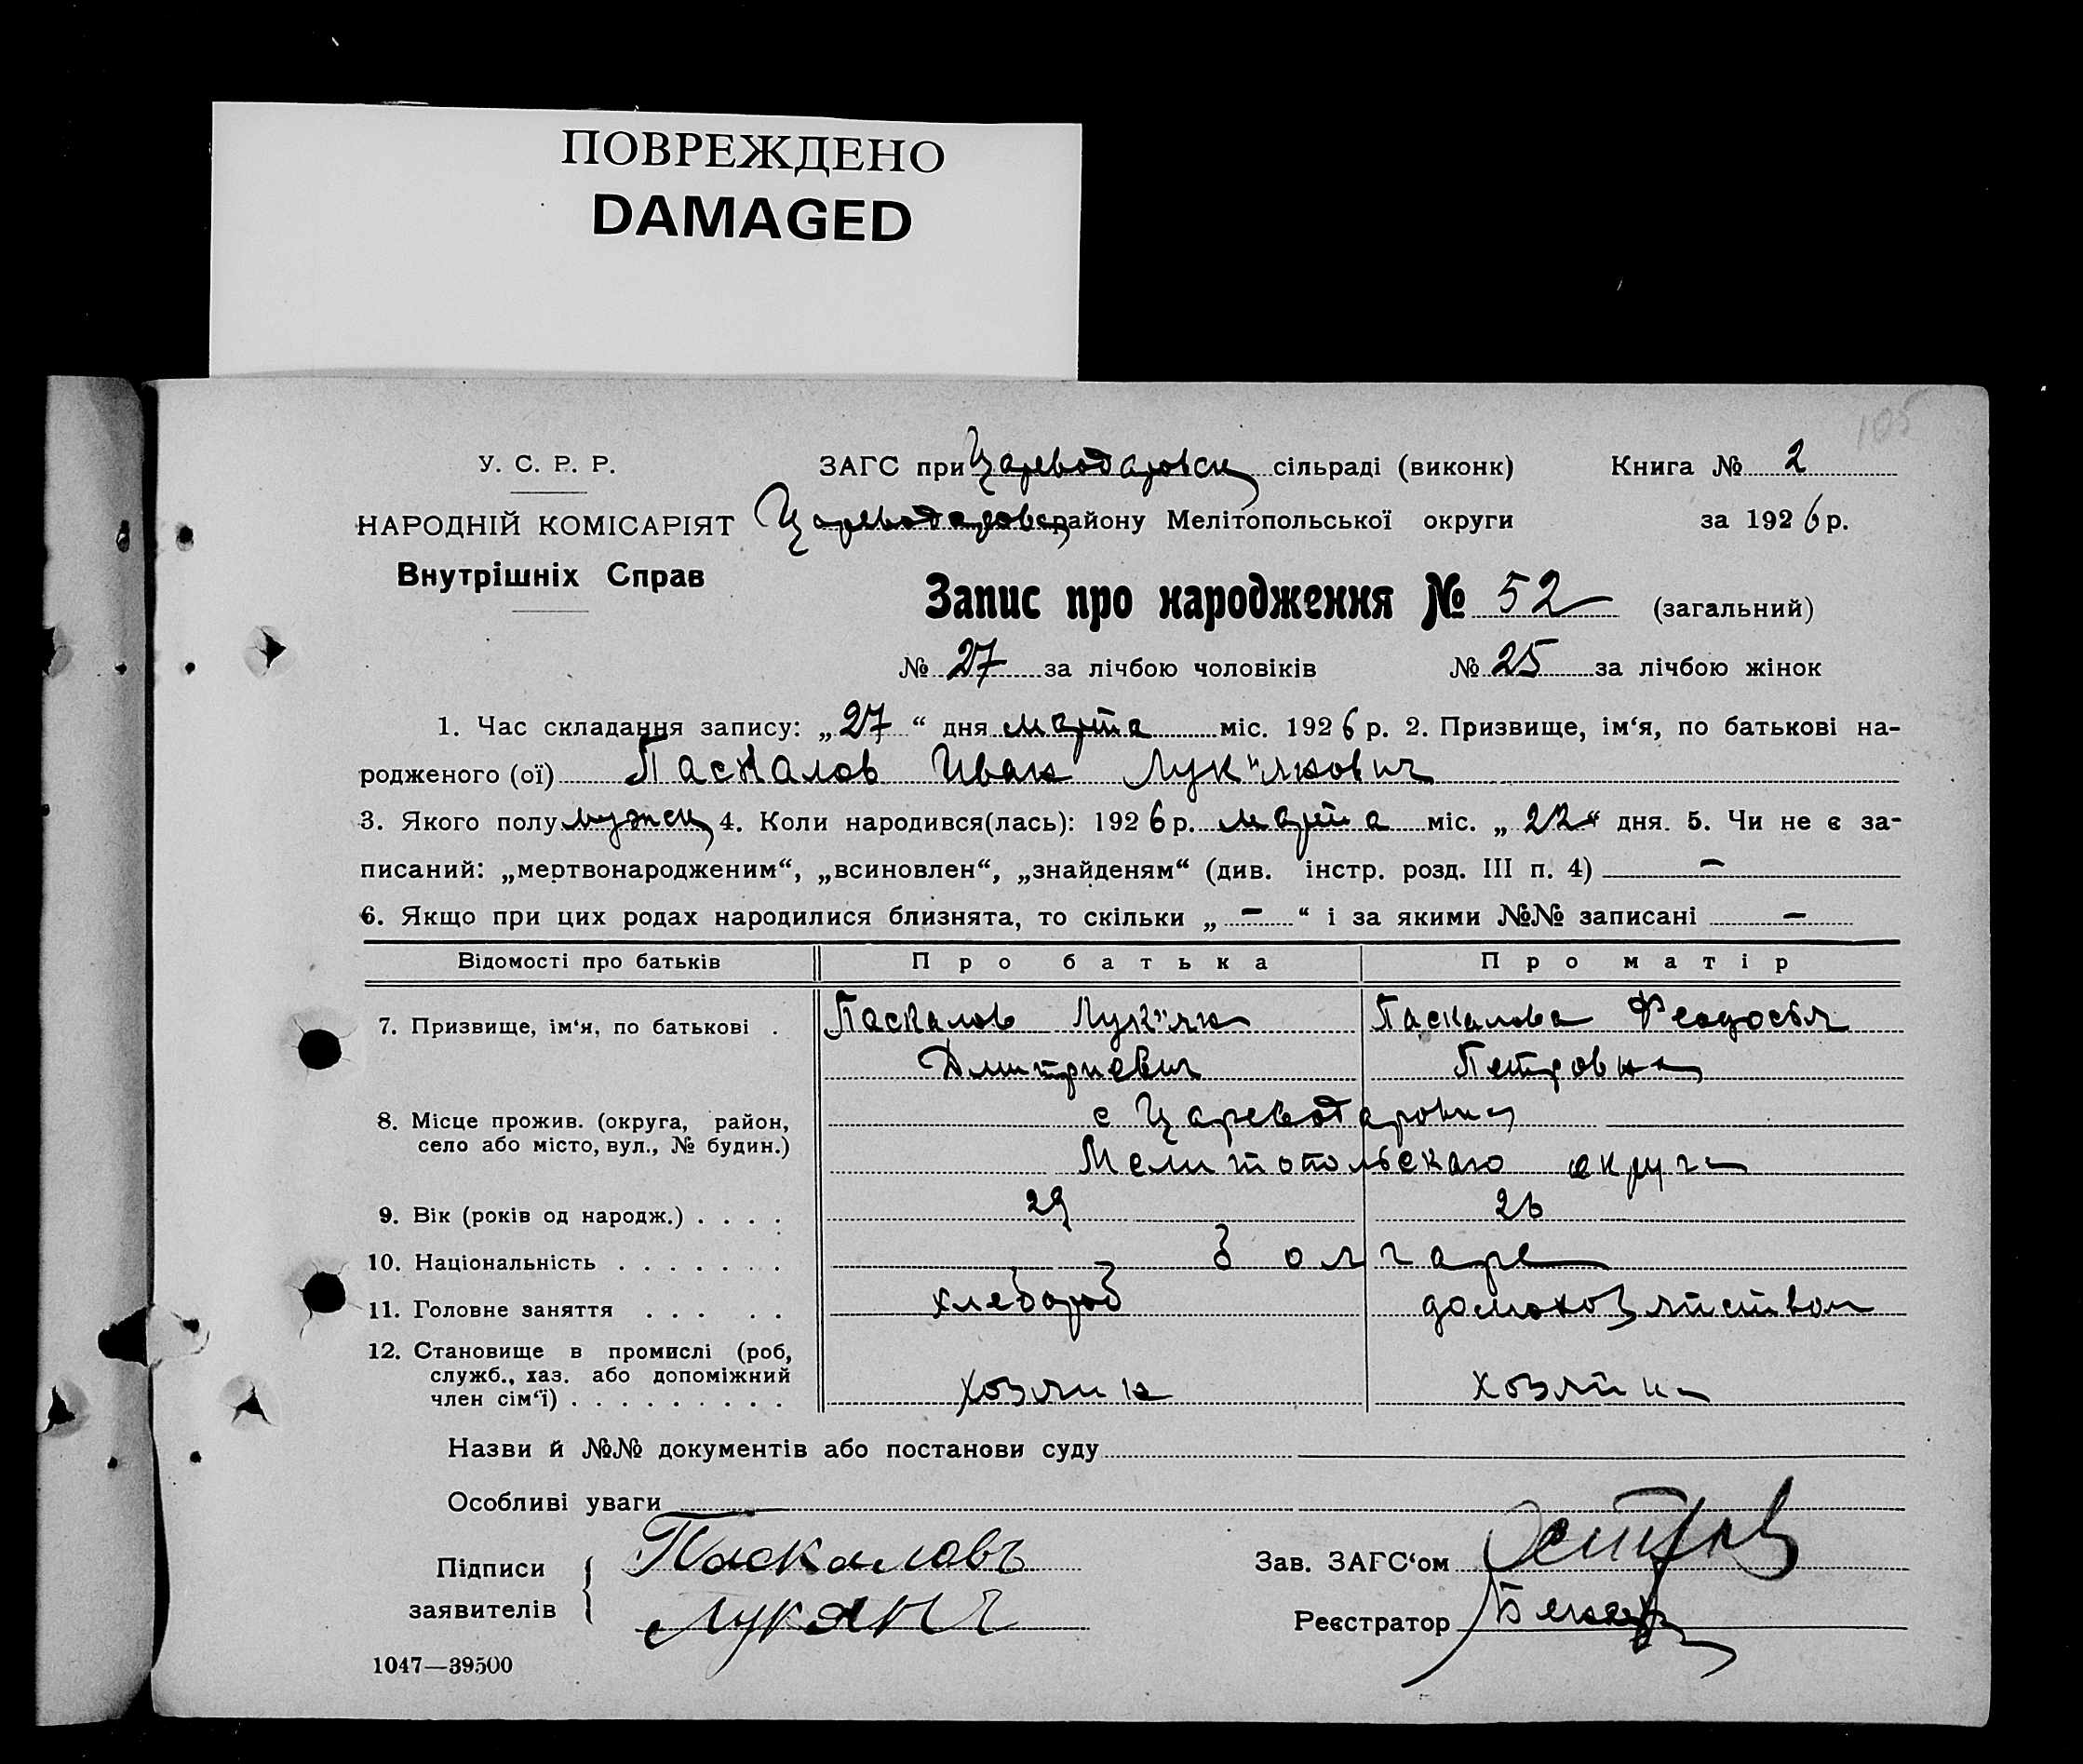 ПОВРЕЖДЕНО
DAMAGED
105
У. С. Р. Р.
НАРОДНІЙ КОМІСАРІЯТ
Внутрішніх Справ
ЗАГС при Цареводаровск сільраді (виконк) Книга № 2
Цареводаровск району Мелітопольської округи за 1926 р.
Запис про народження № 52 (загальний)
№ 27 за лічбою чоловіків № 25 за лічбою жінок
1. Час складання запису: „27“ дня марта міс. 1926 р. 2. Призвище, ім‘я, по батькові на-
родженого (ої) Паскалов Иван Лук"янович
3. Якого полу мужск 4. Коли народився(лась): 1926 р. марта міс. „22“ дня. 5. Чи не є за-
писаний: „мертвонародженим“, „всиновлен“, „знайденям“ (див. інстр. розд. III п. 4) —
6. Якщо при цих родах народилися близнята, то скільки „ — “ і за якими №№ записані —
Відомості про батьків Про батька Про матір
7. Призвище, ім‘я, по батькові . Паскалов Лук"ян Паскалова Феодосья
Дмитриевич Петровна
8. Місце прожив. (округа, район, село або місто, вул., № будин.) с Цареводаровка
Мелитопольскаго округа
9. Вік (років од народж.) . . . . 29 26
10. Національність . . . . . . . болгаре
11. Головне заняття . . . . . хлебороб домохозяйством
12. Становище в промислі (роб,
служб., хаз. або допоміжний
член сім‘ї) . . . . . . . . . хозяин хозяйка
Назви й №№ документів або постанови суду
Особливі уваги
Підписи заявителів Паскаловъ
Лукян
Зав. ЗАГС‘ом
Реєстратор
1047—39500